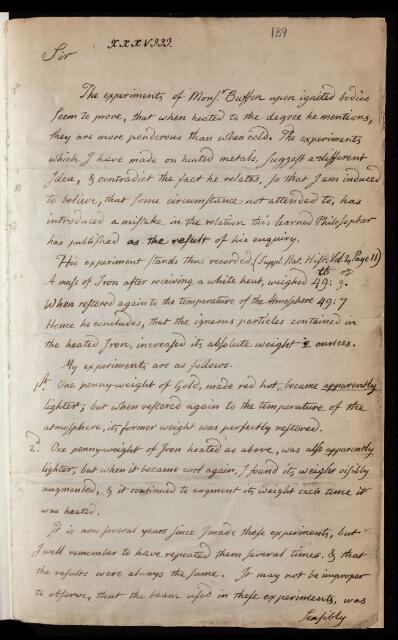 189
XXXVIII.
Sir
The experiments of Mons.r Buffon upon ignited bodies
seem to prove, that when heated to the degree he mentions,
they are more ponderous than when cold. The experiments
which I have made on heated metals, suggest a different
Idea, & contradict the fact he relates, so that I am induced
to believe, that some circumstance not attended to, has
introduced a mistake in the relation this learned Philosopher
has published as the result of his enquiry.
His experiment stands thus recorded, (Suppl. Nat. Hist. Vol 2, Page 11)
lb oz
A mass of Iron after receiving a white heat, weighed 49: 9.
When restored again to the temperature of the Atmosphere 49: 7
Hence he concludes, that the igneous particles contained in
the heated Iron, increased its absolute weight 2 ounces.
My experiments are as follows.
1st. One penny-weight of Gold, made red hot, became apparently
lighter; but when restored again to the temperature of the
atmosphere, its former weight was perfectly restored.
2d. One pennyweight of Iron heated as above, was also apparently
lighter, but when it became cool again, I found its weight visibly
augmented, & it continued to augment its weight each time it
was heated.
It is now several years since I made these experiments, but
I well remember to have repeated them several times, & that
the results were always the same. It may not be improper
to observe, that the beam used in these experiments, was
sensibly